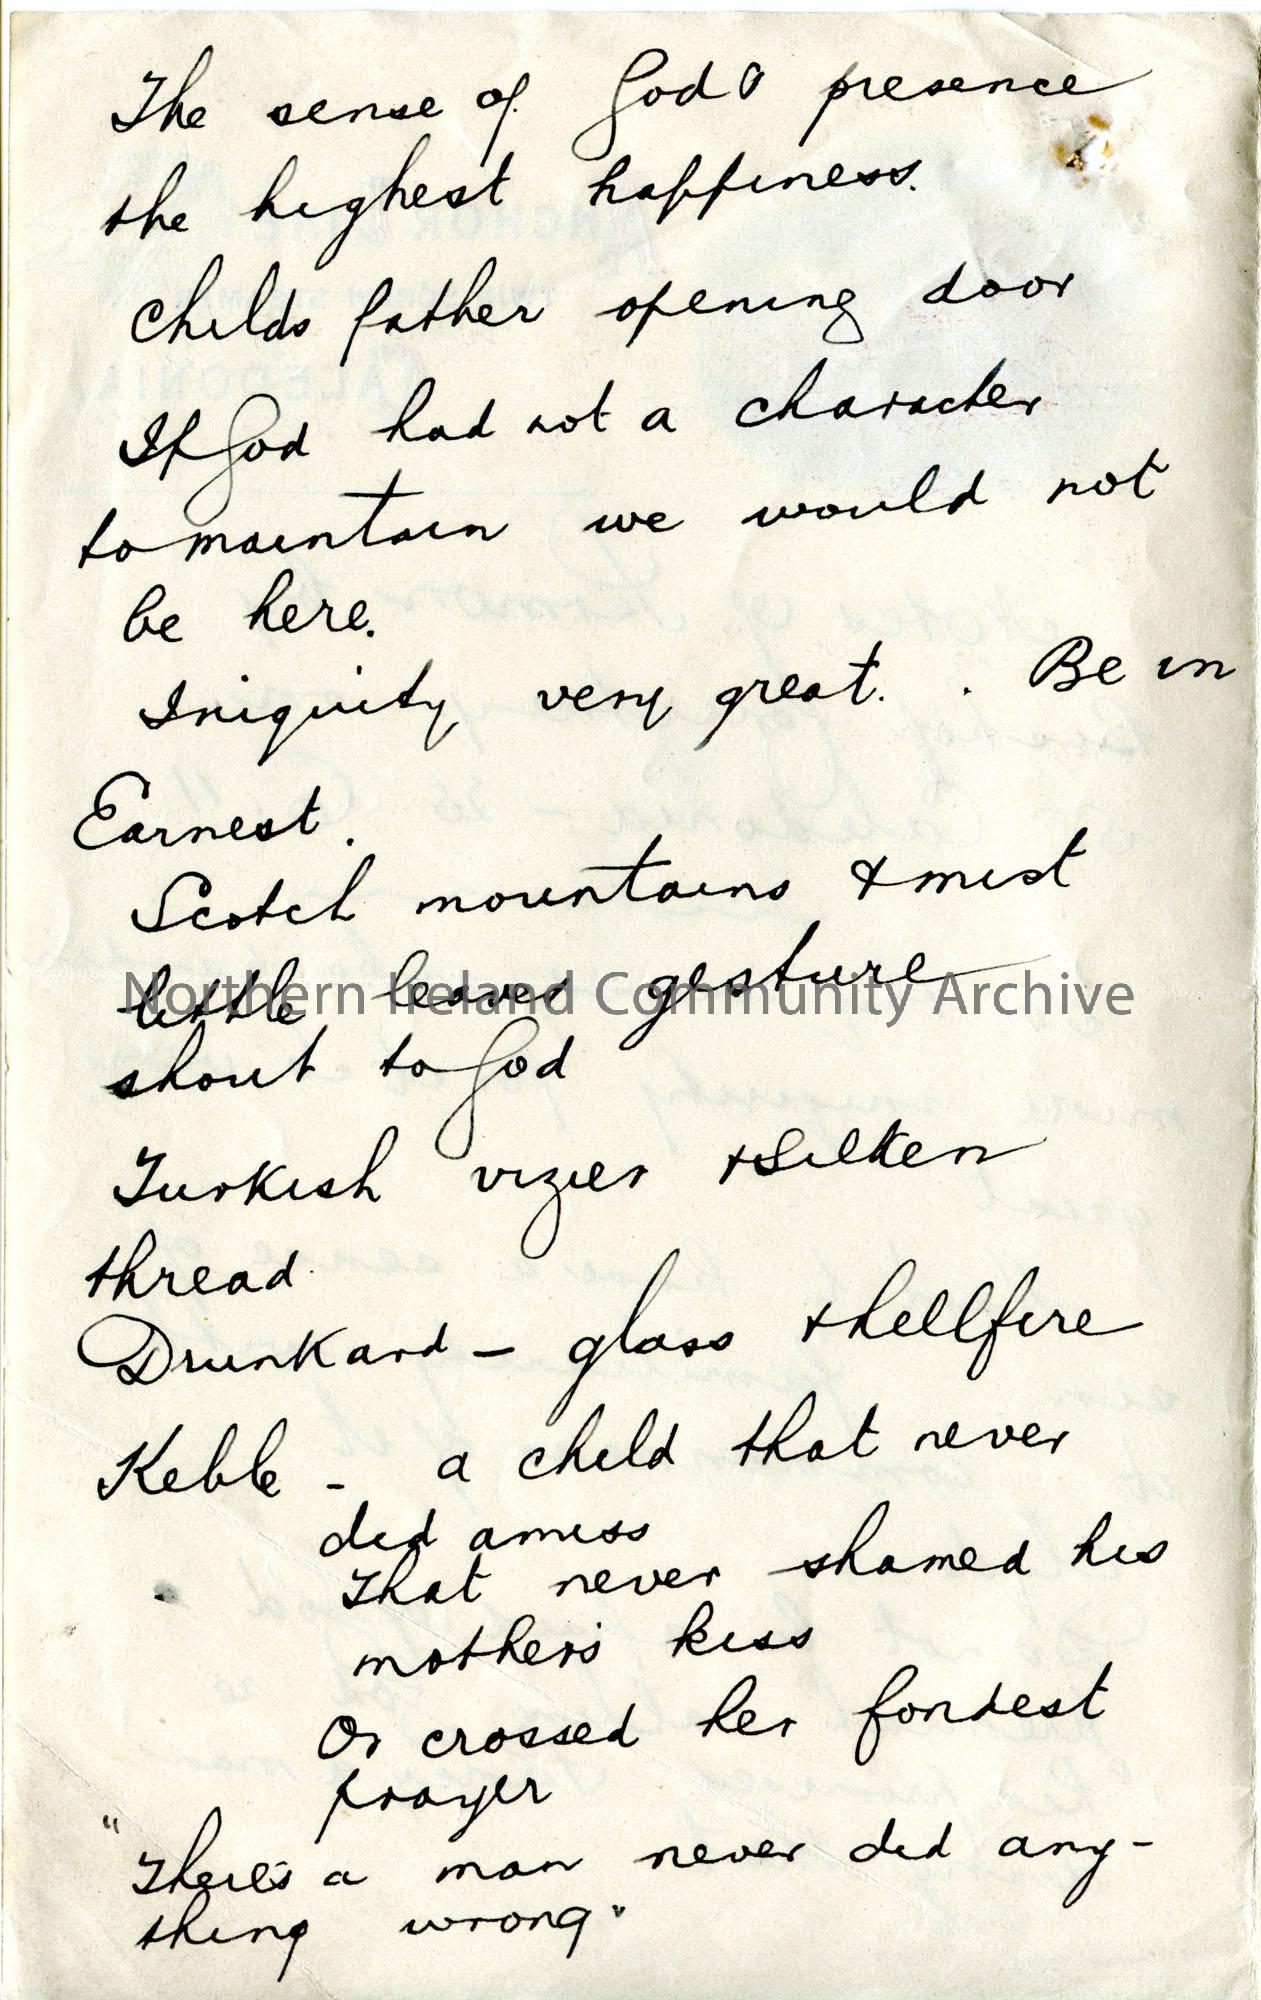 The sense of Gods presence
the highest happiness.
Childs father opening door
If God had not a character
to maintain we would not
be here.
Iniquity very great. . Be in
Earnest.
Scotch mountains & mist
little leaves gesture
Northern Ireland Community Archive
shout to God
Turkish vizier & Silken
thread.
Drunkard – glass & hellfire
Keble – a child that never
did amiss
That never shamed his
mother's kiss
Or crossed her fondest
prayer
"There's a man never did any-
thing wrong"